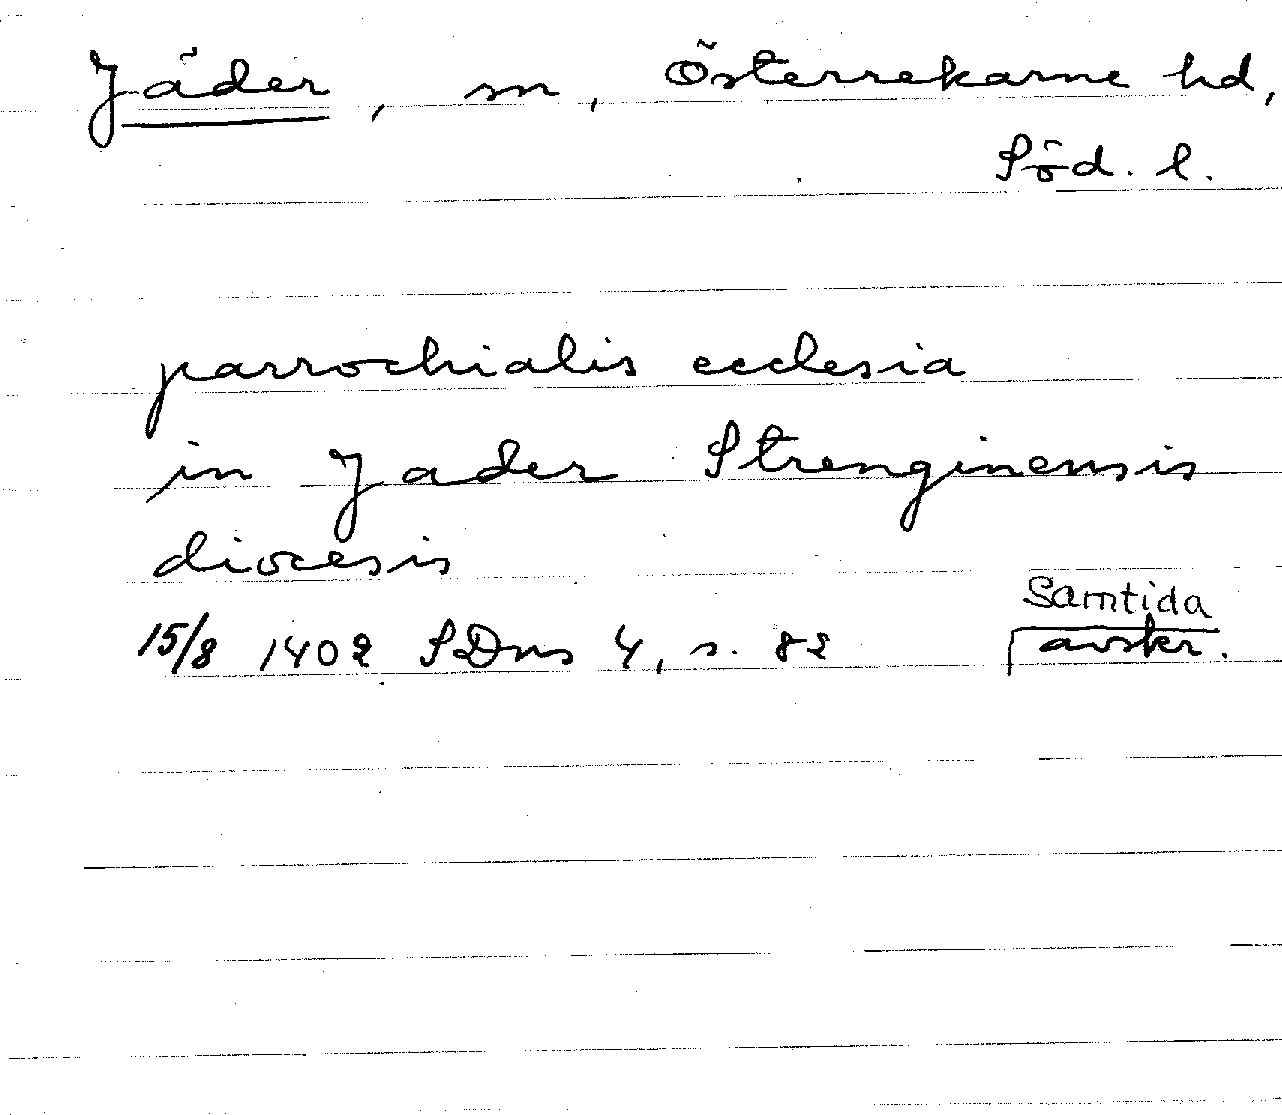 Jäder, sn, Österrekarne hd,
Söd. l.
parrochialis ecclesia
in Jader Strenginensis
diocesis
Samtida
15/8 1402 SDns 4, s. 82 avskr.